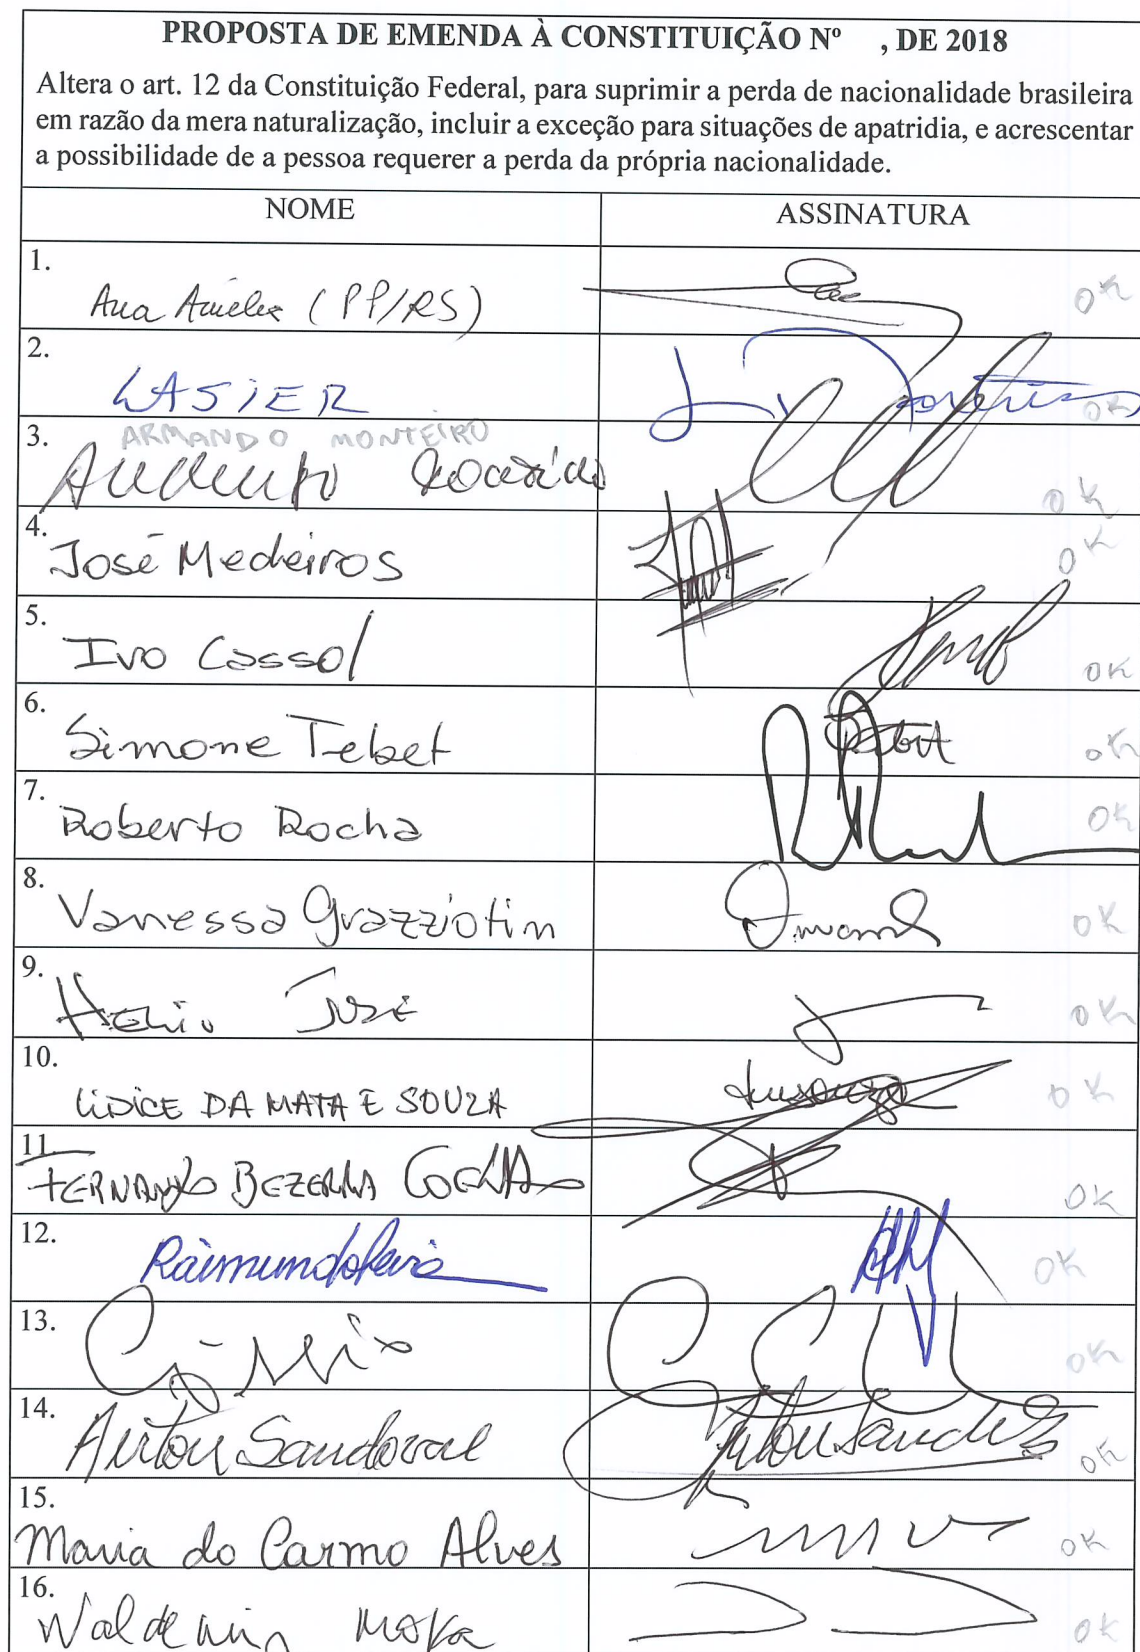 PROPOSTA DE EMENDA À CONSTITUIÇÃO Nº , DE 2018
Altera o art. 12 da Constituição Federal, para suprimir a perda de nacionalidade brasileira
em razão da mera naturalização, incluir a exceção para situações de apatridia, e acrescentar
a possibilidade de a pessoa requerer a perda da própria nacionalidade.
NOME ASSINATURA
1. Ana Amélia (PP/RS) OK
2. LASIER OK
3. ARMANDO MONTEIRO
OK
4. José Medeiros OK
5. Ivo Cassol OK
6. Simone Tebet Tebet OK
7. Roberto Rocha OK
8. Vanessa Grazziotin OK
9. Hélio José OK
10. LÍDICE DA MATA E SOUZA OK
11. FERNANDO BEZERRA COELHO OK
12. Raimundo Lira OK
13. OK
14. Airton Sandoval Airton Sandoval OK
15. Maria do Carmo Alves OK
16. Waldemir Moka OK